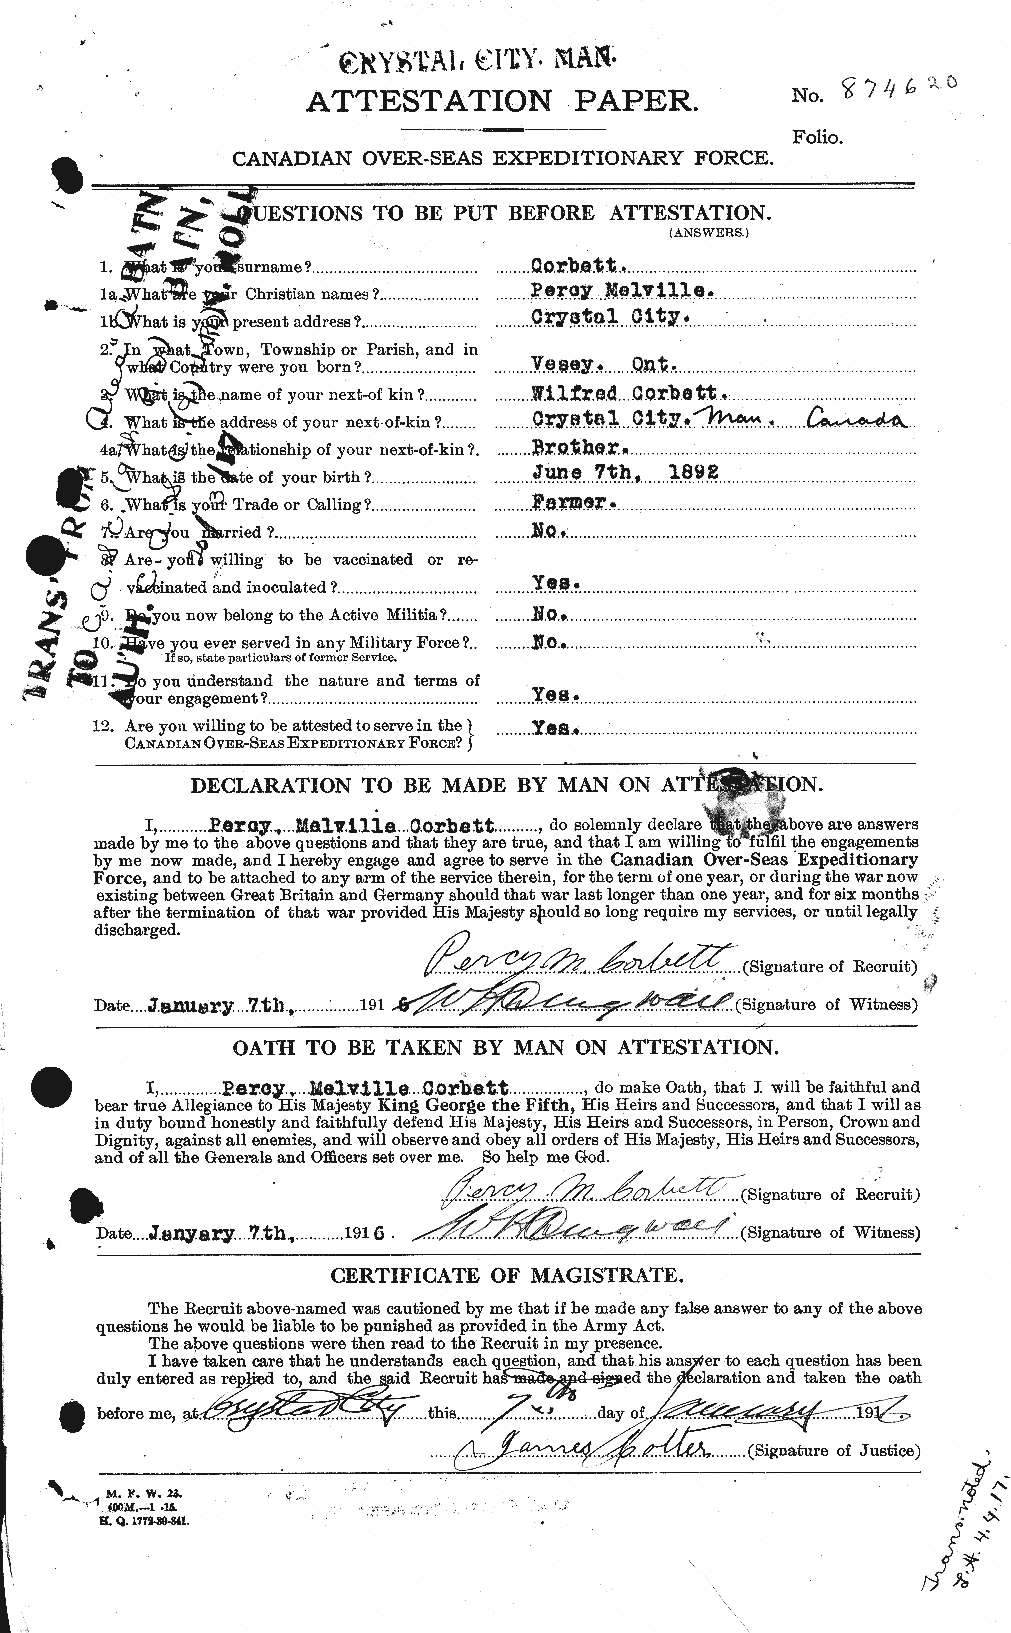 CRYSTAL CITY. MAN.
ATTESTATION PAPER.
No. 874620
Folio.
CANADIAN OVER-SEAS EXPEDITIONARY FORCE.
QUESTIONS TO BE PUT BEFORE ATTESTATION.
(ANSWERS.)
1. What is your surname? Corbett.
1a. What are your Christian names? Percy Melville.
1b. What is your present address? Crystal City.
2. In what Town, Township or Parish, and in
what Country were you born? Vesey. Ont.
3. What is the name of your next-of kin? Wilfred Corbett.
4. What is the address of your next-of-kin? Crystal City. Man. Canada
4a. What is the relationship of your next-of-kin? Brother.
5. What is the date of your birth? June 7th, 1892
6. What is your Trade or Calling? Farmer.
7. Are you married? No.
8. Are you willing to be vaccinated or re-
vaccinated and inoculated? Yes.
9. Do you now belong to the Active Militia? No.
10. Have you ever served in any Military Force? No.
If so, state particulars of former Service.
11. Do you understand the nature and terms of
your engagement? Yes.
12. Are you willing to be attested to serve in the
CANADIAN OVER-SEAS EXPEDITIONARY FORCE? Yes.
TRANS' FROM BATN
TO BATN,
AUTH.
DECLARATION TO BE MADE BY MAN ON ATTESTATION.
I, Percy, Melville Corbett, do solemnly declare that the above are answers
made by me to the above questions and that they are true, and that I am willing to fulfil the engagements
by me now made, and I hereby engage and agree to serve in the Canadian Over-Seas Expeditionary
Force, and to be attached to any arm of the service therein, for the term of one year, or during the war now
existing between Great Britain and Germany should that war last longer than one year, and for six months
after the termination of that war provided His Majesty should so long require my services, or until legally
discharged.
Percy M. Corbett (Signature of Recruit)
Date January 7th, 1916 (Signature of Witness)
OATH TO BE TAKEN BY MAN ON ATTESTATION.
I, Percy, Melville Corbett, do make Oath, that I will be faithful and
bear true Allegiance to His Majesty King George the Fifth, His Heirs and Successors, and that I will as
in duty bound honestly and faithfully defend His Majesty, His Heirs and Successors, in Person, Crown and
Dignity, against all enemies, and will observe and obey all orders of His Majesty, His Heirs and Successors,
and of all the Generals and Officers set over me. So help me God.
Percy M. Corbett (Signature of Recruit)
Date Janyary 7th, 1916. (Signature of Witness)
CERTIFICATE OF MAGISTRATE.
The Recruit above-named was cautioned by me that if he made any false answer to any of the above
questions he would be liable to be punished as provided in the Army Act.
The above questions were then read to the Recruit in my presence.
I have taken care that he understands each question, and that his answer to each question has been
duly entered as replied to, and the said Recruit has made and signed the declaration and taken the oath
before me, at Crystal City this 7th day of January 1916.
James Colter (Signature of Justice)
M. F. W. 23.
400M.—1-15.
H. Q. 1772-39-841.
Trans. noted.
4.4.17.